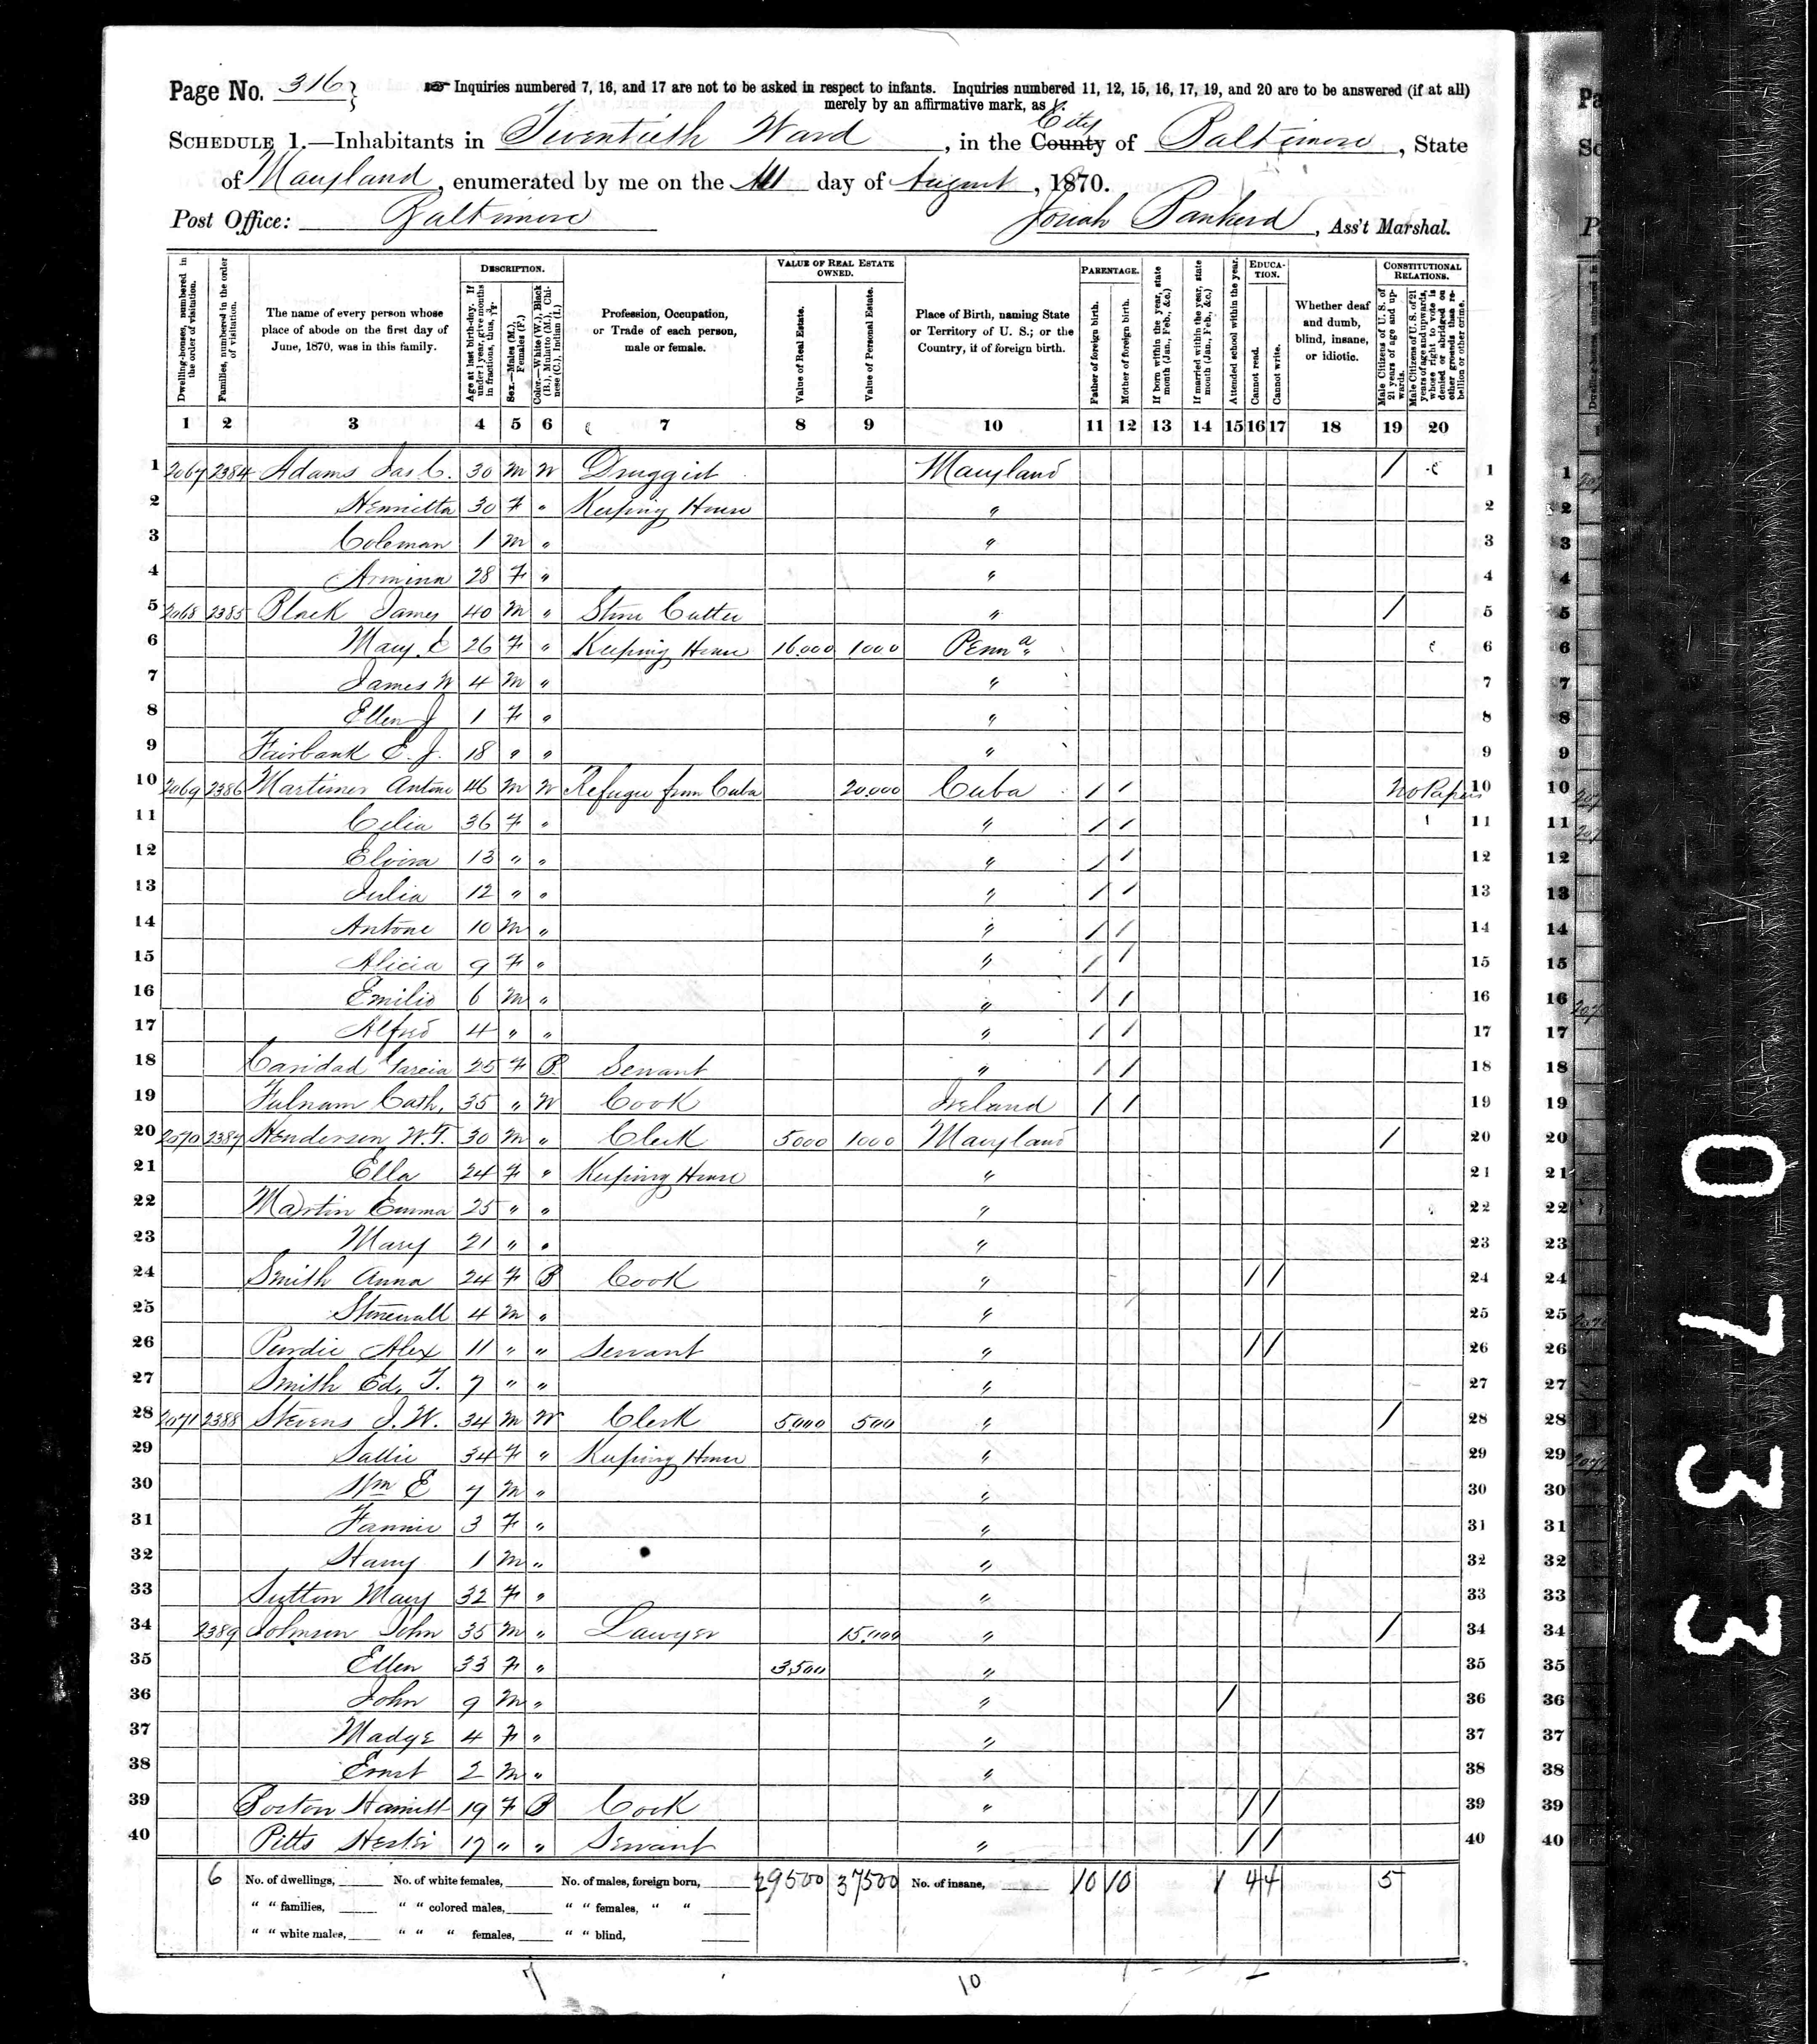 Page No. 316
Inquiries numbered 7, 16, and 17 are not to be asked in respect to infants. Inquiries numbered 11, 12, 15, 16, 17, 19, and 20 are to be answered (if at all)
merely by an affirmative mark, as /.
City
SCHEDULE 1.—Inhabitants in Twentieth Ward, in the County of Baltimore, State
of Maryland, enumerated by me on the day of August, 1870.
Post Office: Baltimore Josiah Bankerd, Ass't Marshal.
Dwelling-houses, numbered in the order of visitation.
Families, numbered in the order of visitation.
The name of every person whose place of abode on the first day of June, 1870, was in this family.
DESCRIPTION.
Age at last birth-day. If under 1 year, give months in fractions, thus, 3/12.
Sex.—Males (M.), Females (F.)
Color.—White (W.), Black (B.), Mulatto (M.), Chinese (C.), Indian (I.)
Profession, Occupation, or Trade of each person, male or female.
VALUE OF REAL ESTATE OWNED.
Value of Real Estate.
Value of Personal Estate.
Place of Birth, naming State or Territory of U. S.; or the Country, if of foreign birth.
PARENTAGE.
Father of foreign birth.
Mother of foreign birth.
If born within the year, state month (Jan., Feb., &c.)
If married within the year, state month (Jan., Feb., &c.)
Attended school within the year.
EDUCATION.
Cannot read.
Cannot write.
Whether deaf and dumb, blind, insane, or idiotic.
CONSTITUTIONAL RELATIONS.
Male Citizens of U. S. of 21 years of age and upwards.
Male Citizens of U. S. of 21 years of age and upwards, whose right to vote is denied or abridged on other grounds than rebellion or other crime.
1 2 3 4 5 6 7 8 9 10 11 12 13 14 15 16 17 18 19 20
1 2067 2384 Adams Jas C. 30 M W Druggist Maryland / 1
2 Henrietta 30 F " Keeping House " 2
3 Coleman 1 M " " 3
4 Armina 28 F " " 4
5 2068 2385 Black James 40 M " Stone Cutter " / 5
6 Mary E 26 F " Keeping House 16,000 1000 Penna 6
7 James W 4 M " " 7
8 Ellen J 1 F " " 8
9 Fairbank E. J. 18 " " " 9
10 2069 2386 Martimer Antone 46 M W Refugee from Cuba 20,000 Cuba / / No Papers 10
11 Celia 36 F " " / / 11
12 Elvira 13 " " " / / 12
13 Julia 12 " " " / / 13
14 Antone 10 M " " / / 14
15 Alicia 9 F " " / / 15
16 Emilio 6 M " " / / 16
17 Alfred 4 " " " / / 17
18 Caridad Garcia 25 F B Servant " / / 18
19 Fulnam Cath. 35 " W Cook Ireland / / 19
20 2070 2387 Henderson W.T. 30 M " Clerk 5000 1000 Maryland / 20
21 Ella 24 F " Keeping House " 21
22 Martin Emma 25 " " " 22
23 Mary 21 " " " 23
24 Smith Anna 24 F B Cook " / / 24
25 Stonewall 4 M " " 25
26 Purdie Alex 11 " " Servant " / / 26
27 Smith Ed. T. 7 " " " 27
28 2071 2388 Stevens J. W. 34 M W Clerk 5,000 500 " / 28
29 Sallie 34 F " Keeping House " 29
30 Wm E 7 M " " 30
31 Fannie 3 F " " 31
32 Harry 1 M " " 32
33 Sutton Mary 32 F " " 33
34 2389 Johnson John 35 M " Lawyer 15,000 " / 34
35 Ellen 33 F " 3,500 " 35
36 John 9 M " " / 36
37 Madge 4 F " " 37
38 Ernst 2 M " " 38
39 Boston Harriett 19 F B Cook " / / 39
40 Pitts Hester 17 " " Servant " / / 40
6 No. of dwellings, No. of white females, No. of males, foreign born, 29500 37500 No. of insane, 10 10 1 4 4 5
" " families, " " colored males, " " females, " "
" " white males, " " " females, " " blind,
7 10
0733